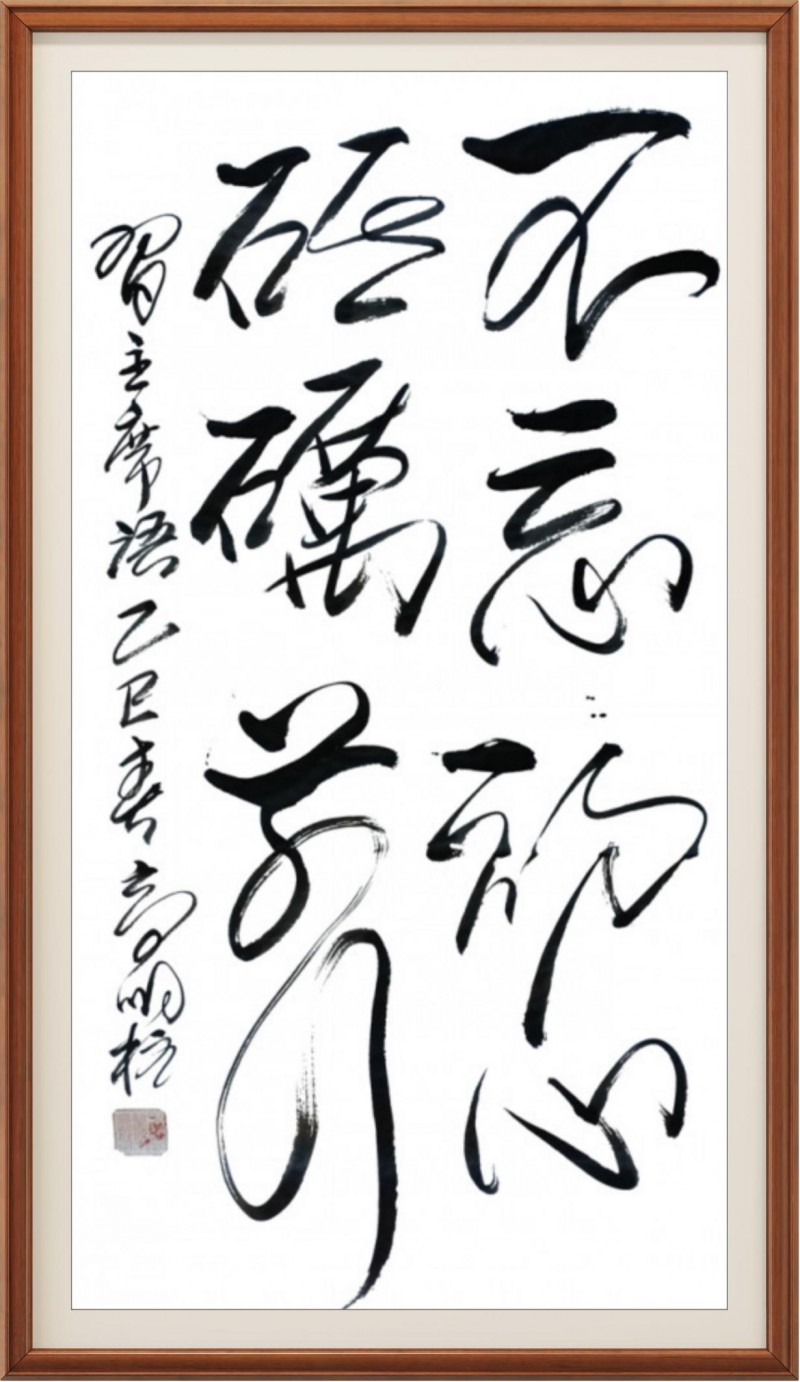 不忘初心
砥礪前行
習主席語乙巳春高明柱